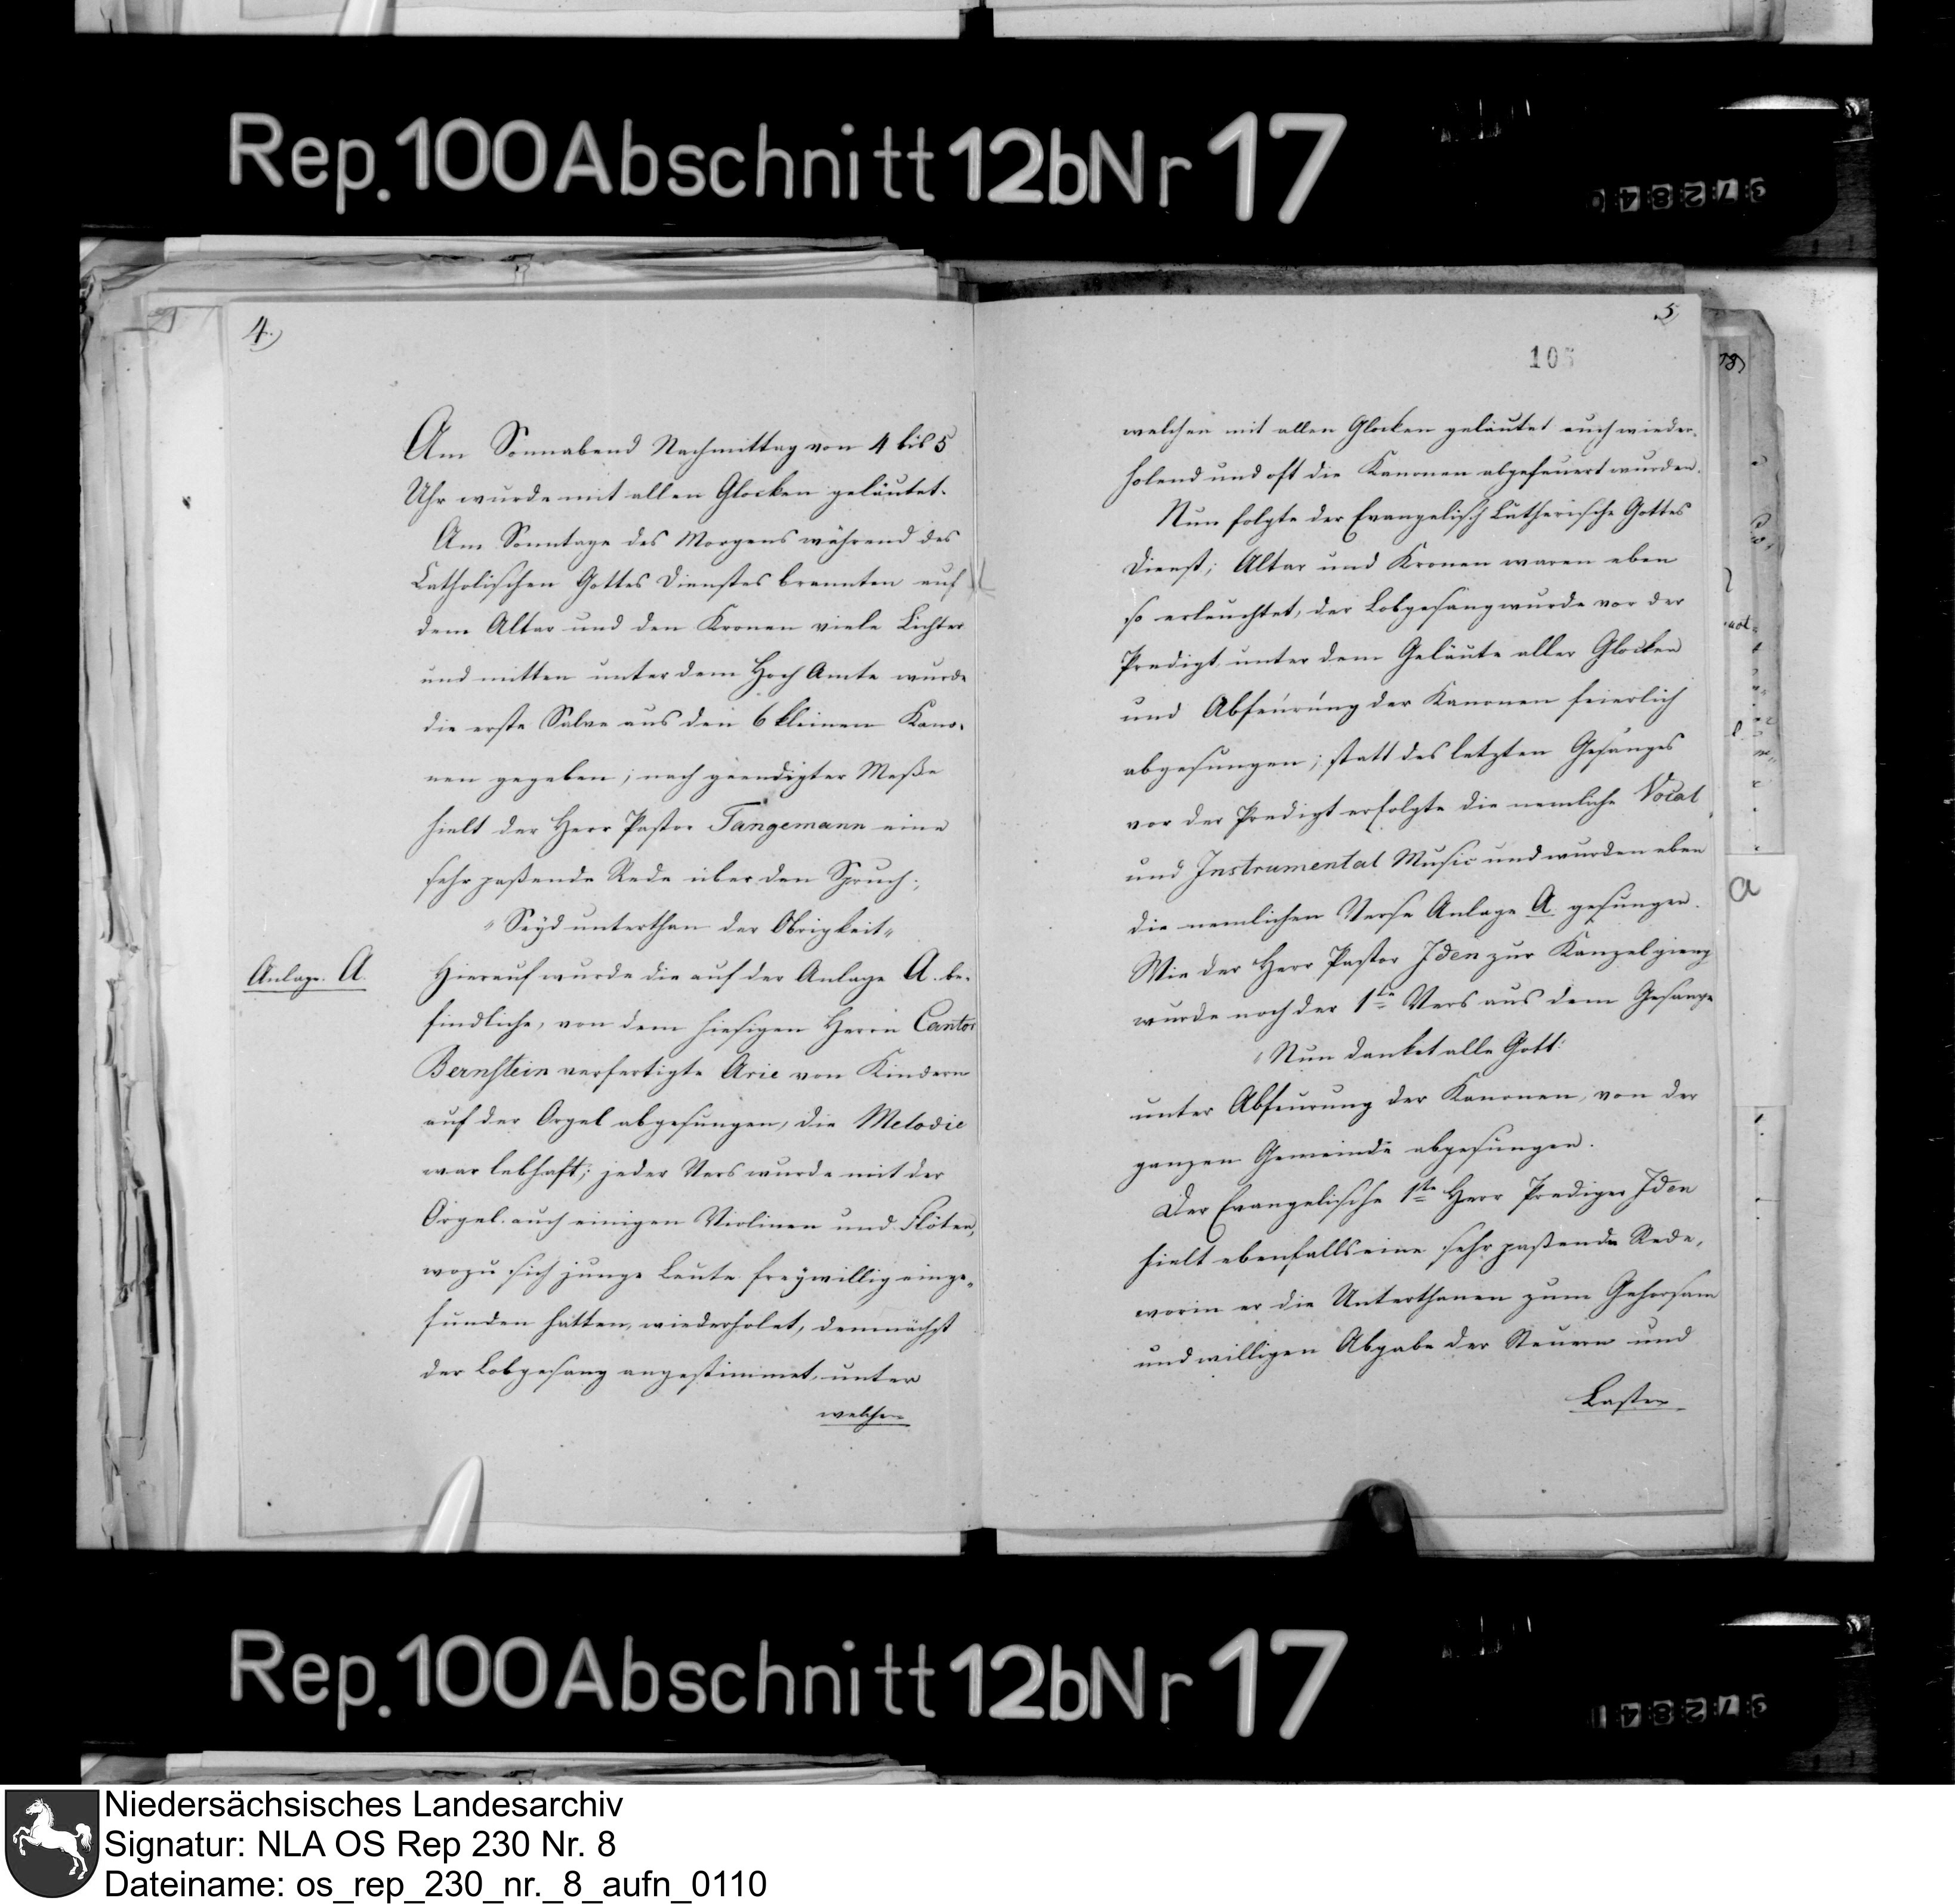 Rep. 100 Abschnitt 12b Nr 17
37284
4.)
Am Sonnabend Nachmittag von 4 bis 5
Uhr wurde mit allen Glocken geläutet.
Am Sonntage des Morgens während des
Catholischen Gottes Dienstes brannten auf
dem Altar und den Kronen viele Lichter
und mitten unter dem Hoch Amte wurde
die erste Salve aus den 6 kleinen Kano-
nen gegeben; nach geendigter Meße
hielt der Herr Pastor Tangemann eine
sehr paßende Rede über den Spruch:,
„Seyd unterthan der Obrigkeit„
Anlage. A.
Hierauf wurde die auf der Anlage A. be-
findliche, von dem hiesigen Herrn Cantor
Bernstein verfertigte Arie von Kindern
auf der Orgel abgesungen, die Melodie
war lebhaft; jeder Vers wurde mit der
Orgel auch einigen Violinen und Flöten,
wozu sich junge Leute freywillig einge-
funden hatten, wiederholet, demnächst
der Lobgesang angestimmet, unter
welchen
5)
105
welchen mit allen Glocken geläutet auch wieder-
holend und oft die Kanonen abgefeuert wurden.
Nun folgte der Evangelisch Lutherische Gottes
Dienst; Altar und Kronen waren eben
so erleuchtet, der Lobgesang wurde vor der
Predigt unter dem Geläute aller Glocken
und Abfeurung der Kanonen feierlich
abgesungen; statt des letzten Gesanges
vor der Predigt erfolgte die nemliche Vocal
und Instrumental Music und wurden eben
die nemlichen Verse Anlage A. gesungen.
Wie der Herr Pastor Iden zur Kanzel gieng
wurde noch der 1te Vers aus dem Gesange
„Nun danket alle Gott:
unter Abfeurung der Kanonen, von der
ganzen Gemeinde abgesungen.
Der Evangelische 1te Herr Prediger Iden
hielt ebenfalls eine sehr paßende Rede,
worin er die Unterthanen zum Gehorsam
und willigen Abgabe der Steuern und
Lasten
Rep. 100 Abschnitt 12b Nr 17
372841
Niedersächsisches Landesarchiv
Signatur: NLA OS Rep 230 Nr. 8
Dateiname: os_rep_230_nr._8_aufn_0110